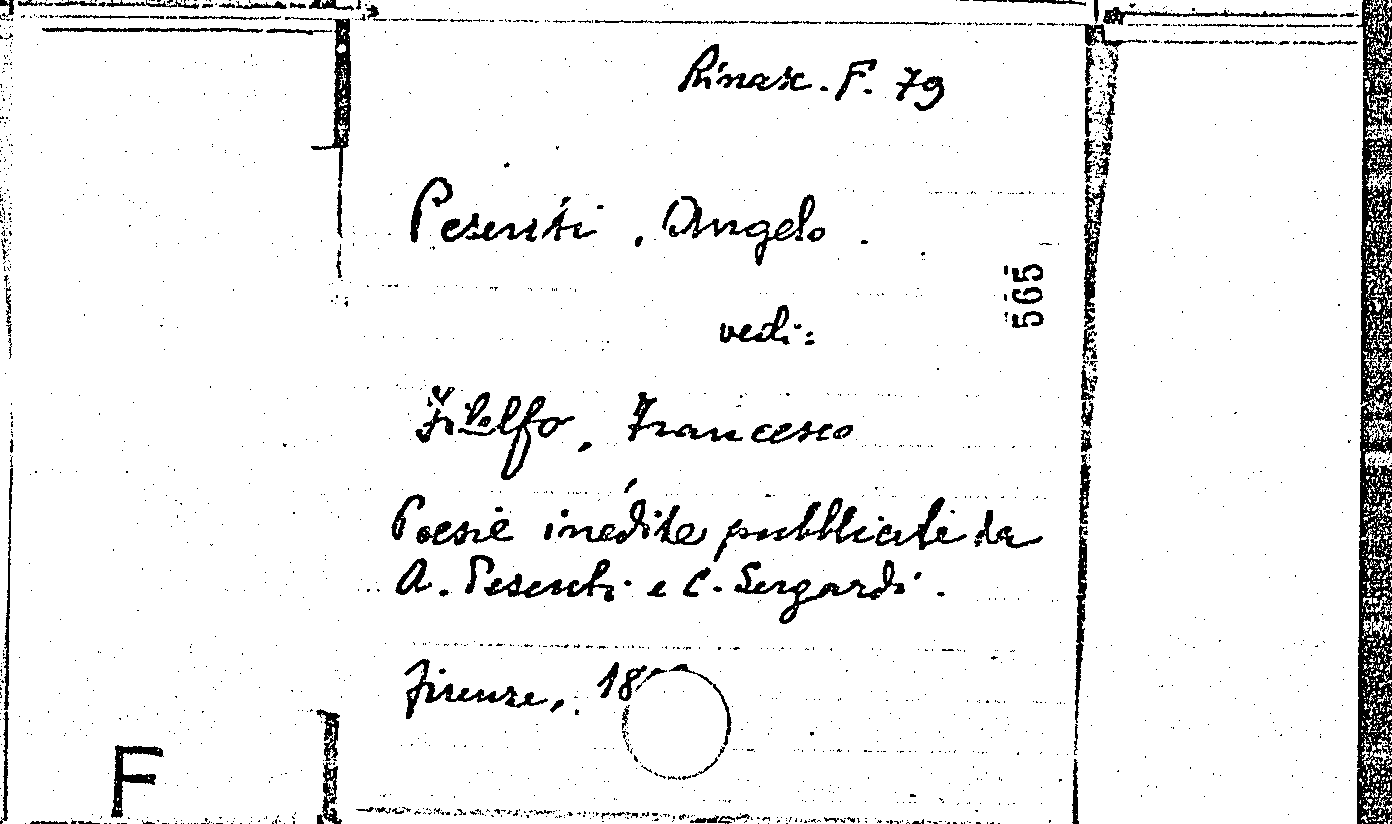 Rinasc. F. 79
Pesenti, Angelo.
565
vedi:
Filelfo, Francesco
Poesie inedite pubblicate da
A. Pesenti e C. Sergardi.
Firenze, 18
F